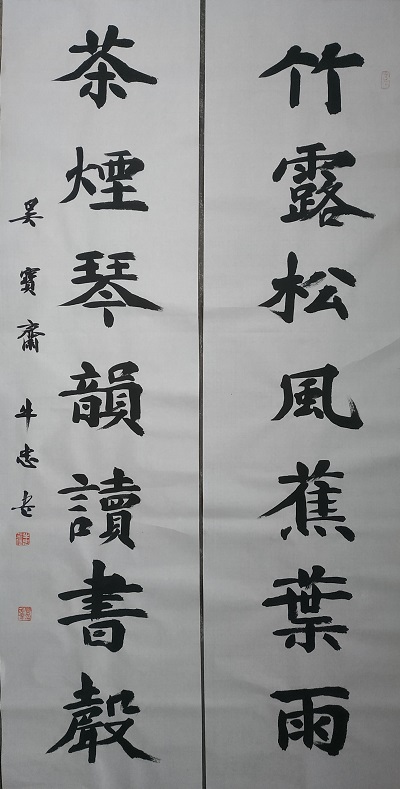 竹露松風蕉葉雨
茶煙琴韻讀書聲
吴寶齋牛忠